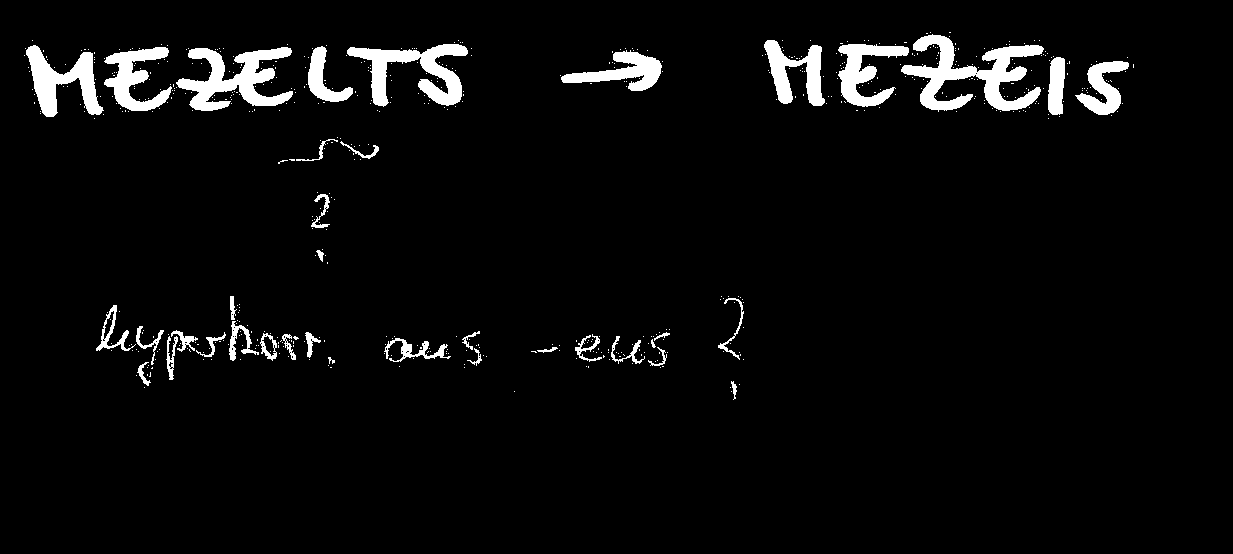 MEZELTS → MEZEIS
?
hyperkorr. aus -eus ?